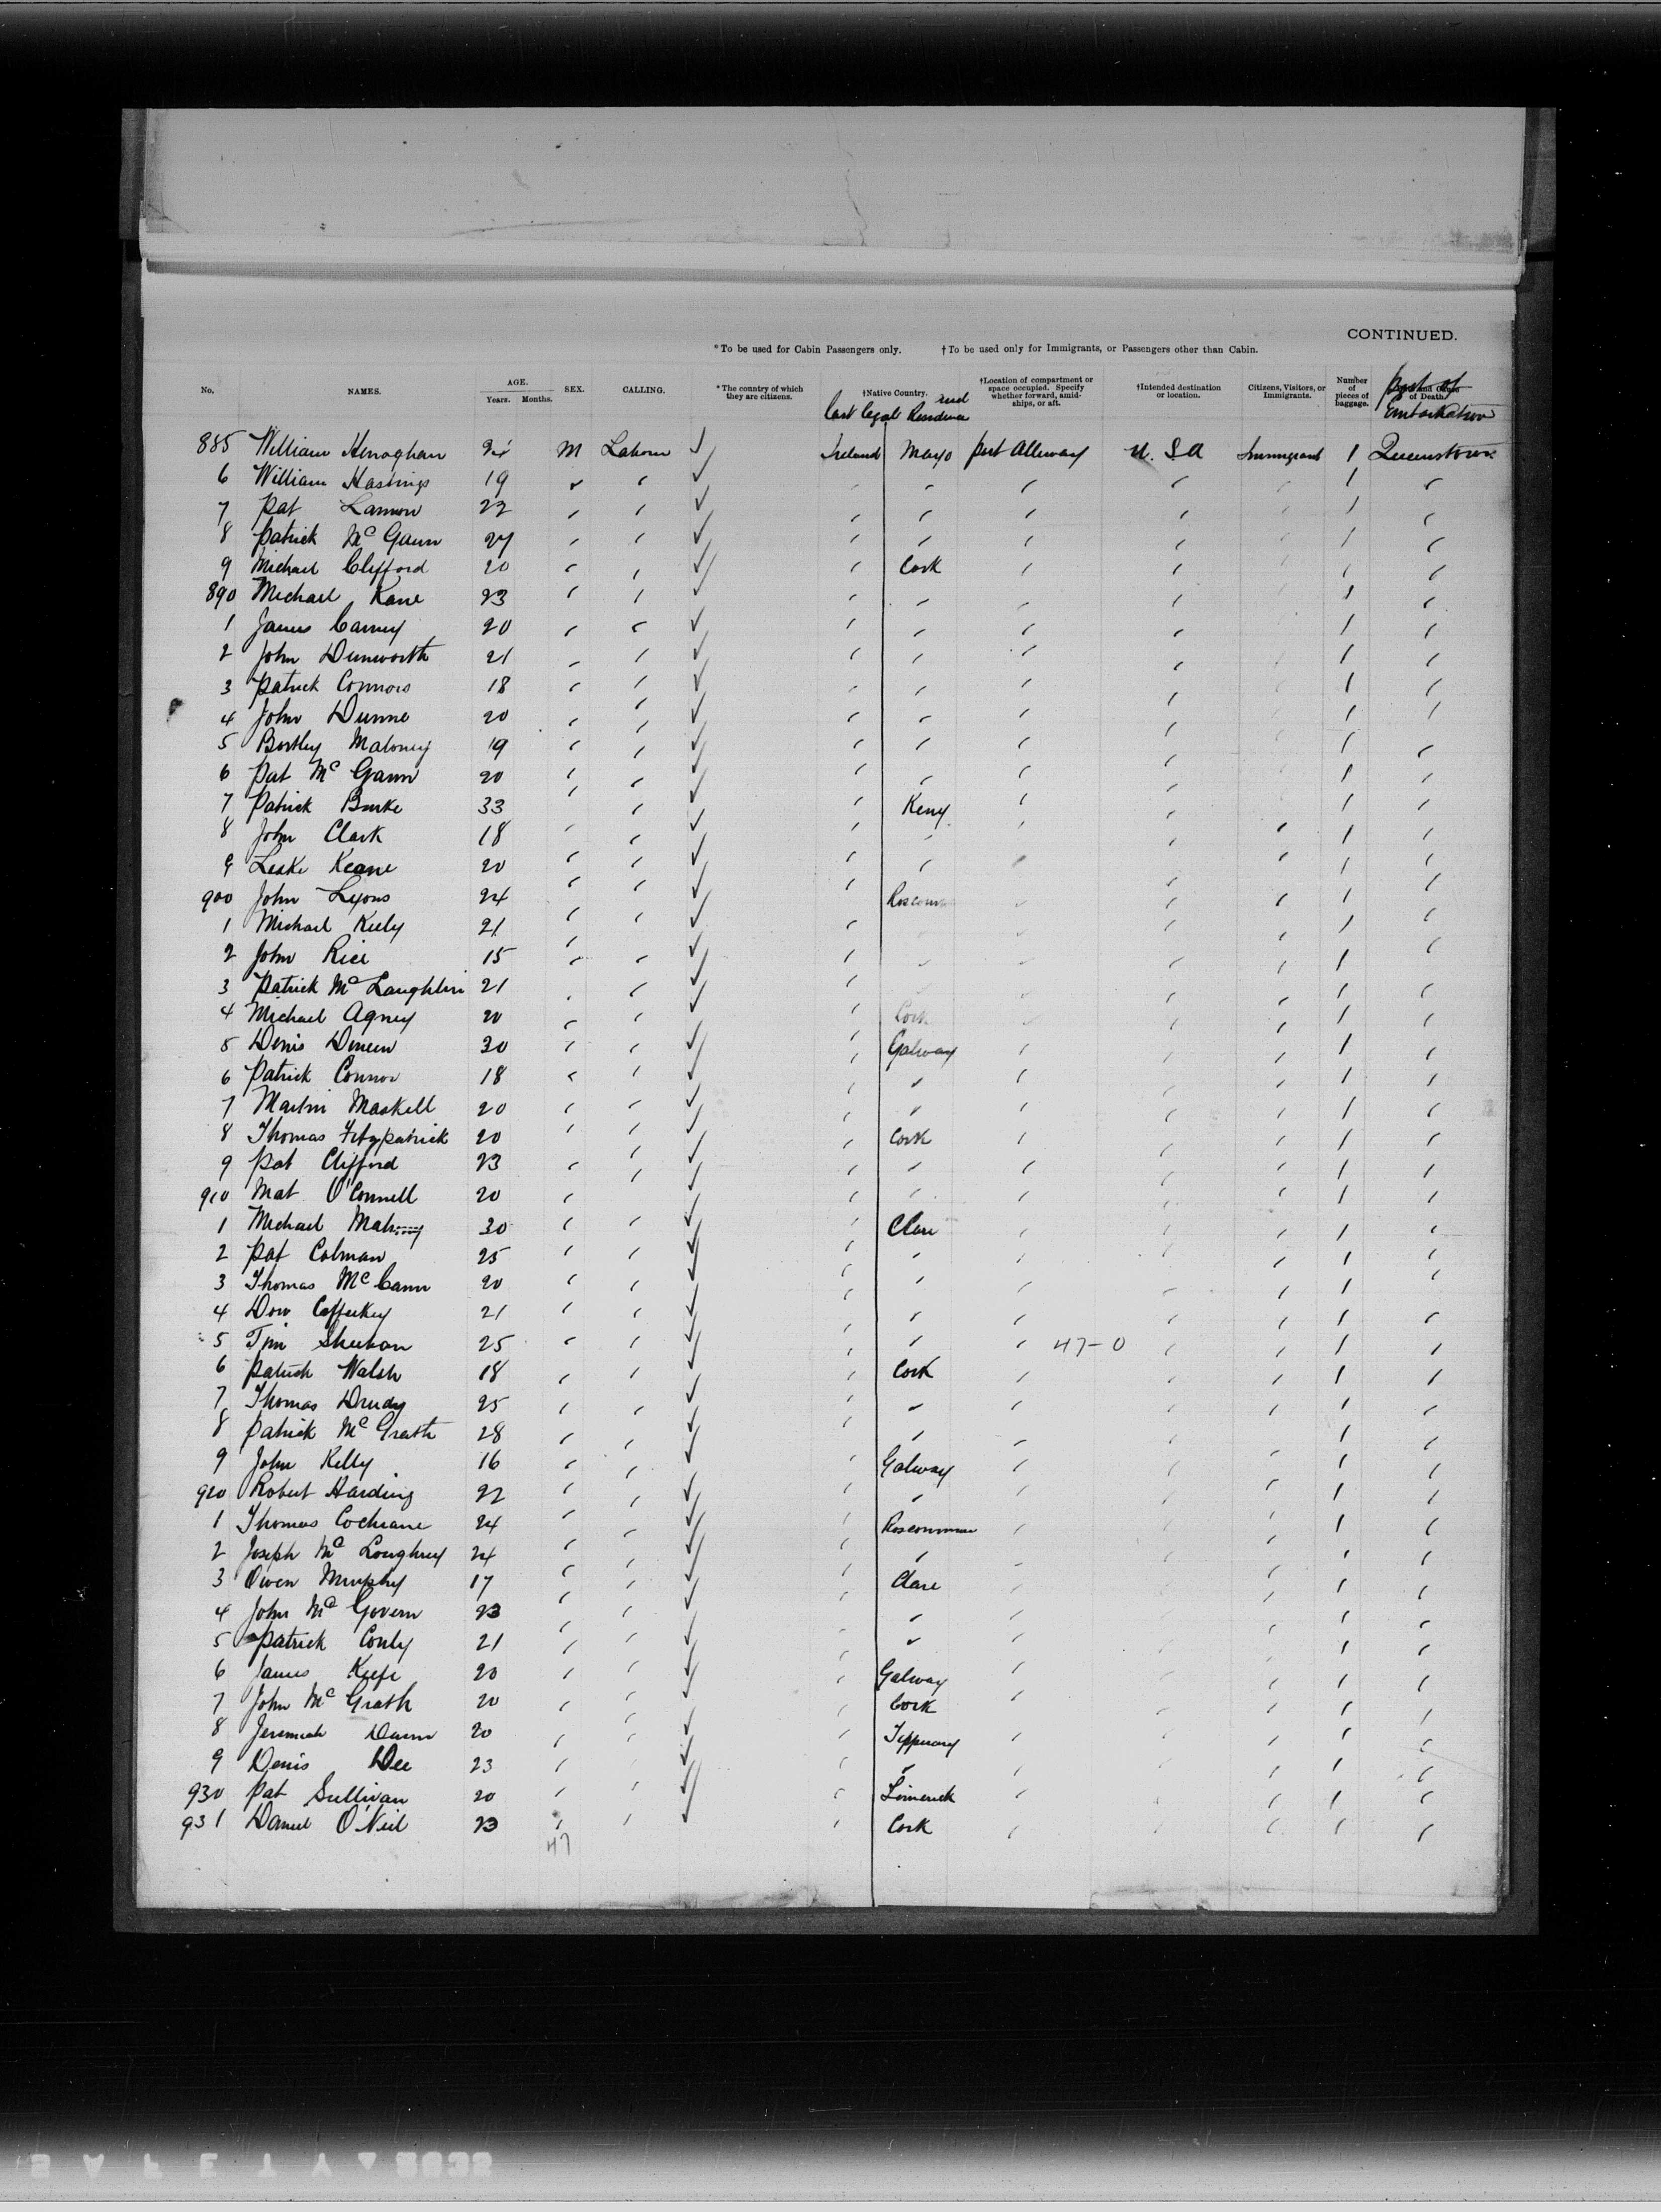 CONTINUED.
*To be used for Cabin Passengers only. †To be used only for Immigrants, or Passengers other than Cabin.
No. NAMES. AGE. Years. Months. SEX. CALLING. *The country of which they are citizens. †Native Country. †Location of compartment or space occupied. Specify whether forward, amidships, or aft. †Intended destination or location. Citizens, Visitors, or Immigrants. Number of pieces of baggage. of Death.
last legal Residence Port of Embarkation
885 William Henaghan 24 M Labour Ireland Mayo port Alleway U.S.A Immigrant 1 Queenstown
6 William Hastings 19 1
7 Pat Lannon 22 1
8 Patrick Mc Gann 27 1
9 Michael Clifford 20 Cork 1
890 Michael Kane 23 1
1 James Carney 20 1
2 John Dunworth 21 1
3 Patrick Connors 18 1
4 John Dunne 20 1
5 Bartley Maloney 19 1
6 Pat Mc Gann 20 1
7 Patrick Burke 33 Kerry 1
8 John Clark 18 1
9 Keane 20 1
900 John Lyons 24 1
1 Michael Kiely 21 1
2 John Rice 15 1
3 Patrick Mc Laughlin 21 1
4 Michael Agney 20 Cork 1
5 Denis Dineen 30 Galway 1
6 Patrick Connor 18 1
7 Martin Maskell 20 1
8 Thomas Fitzpatrick 20 Cork 1
9 Pat Clifford 23 1
910 Mat O'Connell 20 1
1 Michael 30 Clare 1
2 Pat Colman 25 1
3 Thomas Mc Cann 20 1
4 21 1
5 Tim Sheehan 25 47-0 1
6 Patrick Walsh 18 Cork 1
7 Thomas Drudy 25 1
8 Patrick Mc Grath 28 1
9 John Kelly 16 Galway 1
920 Robert Harding 22 1
1 Thomas Cochrane 24 Roscommon 1
2 Joseph Mc Loughrey 24 1
3 Owen Murphy 17 Clare 1
4 John Mc Govern 23 1
5 Patrick Conly 21 1
6 James Keefe 20 Galway 1
7 John Mc Grath 20 Cork 1
8 Jeremiah Dunn 20 Tipperary 1
9 Denis Dee 23 1
930 Pat Sullivan 20 Limerick 1
931 Daniel O'Neil 23 Cork 1
47
SAFETY